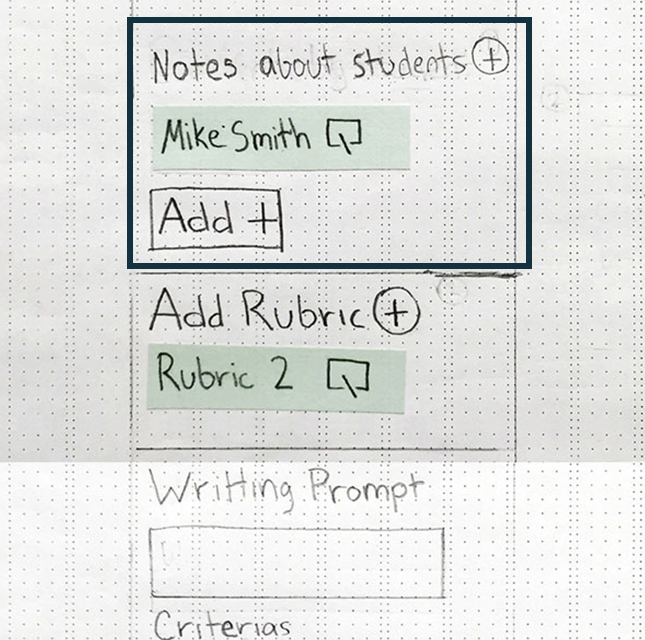 Notes about students +
Mike Smith
Add +
Add Rubric +
Rubric 2
Writting Prompt
Criterias